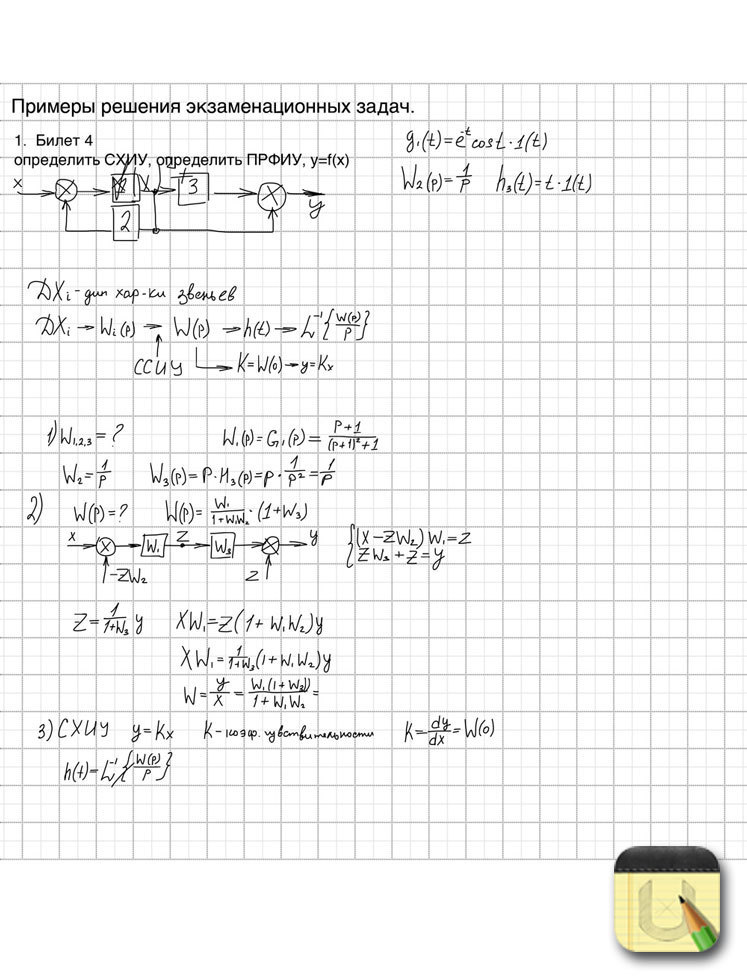 Примеры решения экзаменационных задач.
1. Билет 4
определить СХИУ, определить ПРФИУ, y=f(x)
g₁(t)=e^-t cost·1(t)
W₂(p)=1/p h₃(t)=t·1(t)
x 3
2 y
DXi - дин хар-ки звеньев
DXi → Wi(p) → W(p) → h(t) → L⁻¹{W(p)/p}
ССИУ → K=W(0) → y=Kx
1) W₁,₂,₃=? W₁(p)=G₁(p)=(p+1)/((p+1)²+1)
W₂=1/p W₃(p)=p·H₃(p)=p·1/p²=1/p
2) W(p)=? W(p)=W₁/(1+W₁W₂)·(1+W₃)
x W₁ z W₃ y
-ZW₂ z
{(X-ZW₂)W₁=Z
{ZW₃+Z=y
Z=1/(1+W₃) y XW₁=Z(1+W₁W₂)y
XW₁=1/(1+W₃)(1+W₁W₂)y
W=y/x=W₁(1+W₃)/(1+W₁W₂)=
3) СХИУ y=Kx K-коэф. чувствительности K=dy/dx=W(0)
h(t)=L⁻¹{W(p)/p}